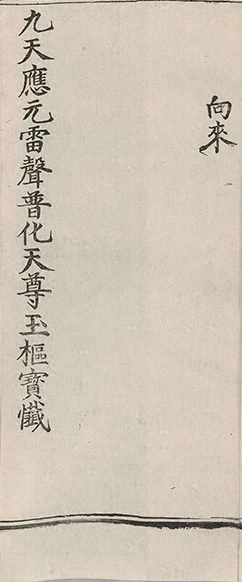 向來
九天應元雷聲普化天尊玉樞寶懺